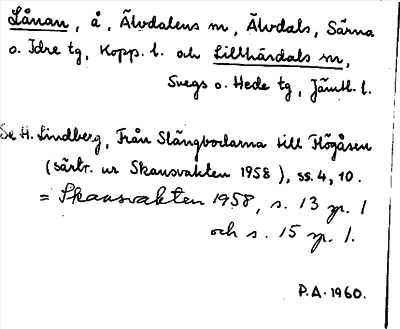 Lånan, å, Älvdalens sn, Älvdals, Särna
o. Idre tg, Kopp. l. och Lillhärdals sn,
Svegs o. Hede tg, Jämtl. l.
Se H. Lindberg, Från Stängbodarna till Högåsen
(särtr. ur Skansvakten 1958), ss. 4, 10.
= Skansvakten 1958, s. 13 sp. 1
och s. 15 sp. 1.
P.A. 1960.